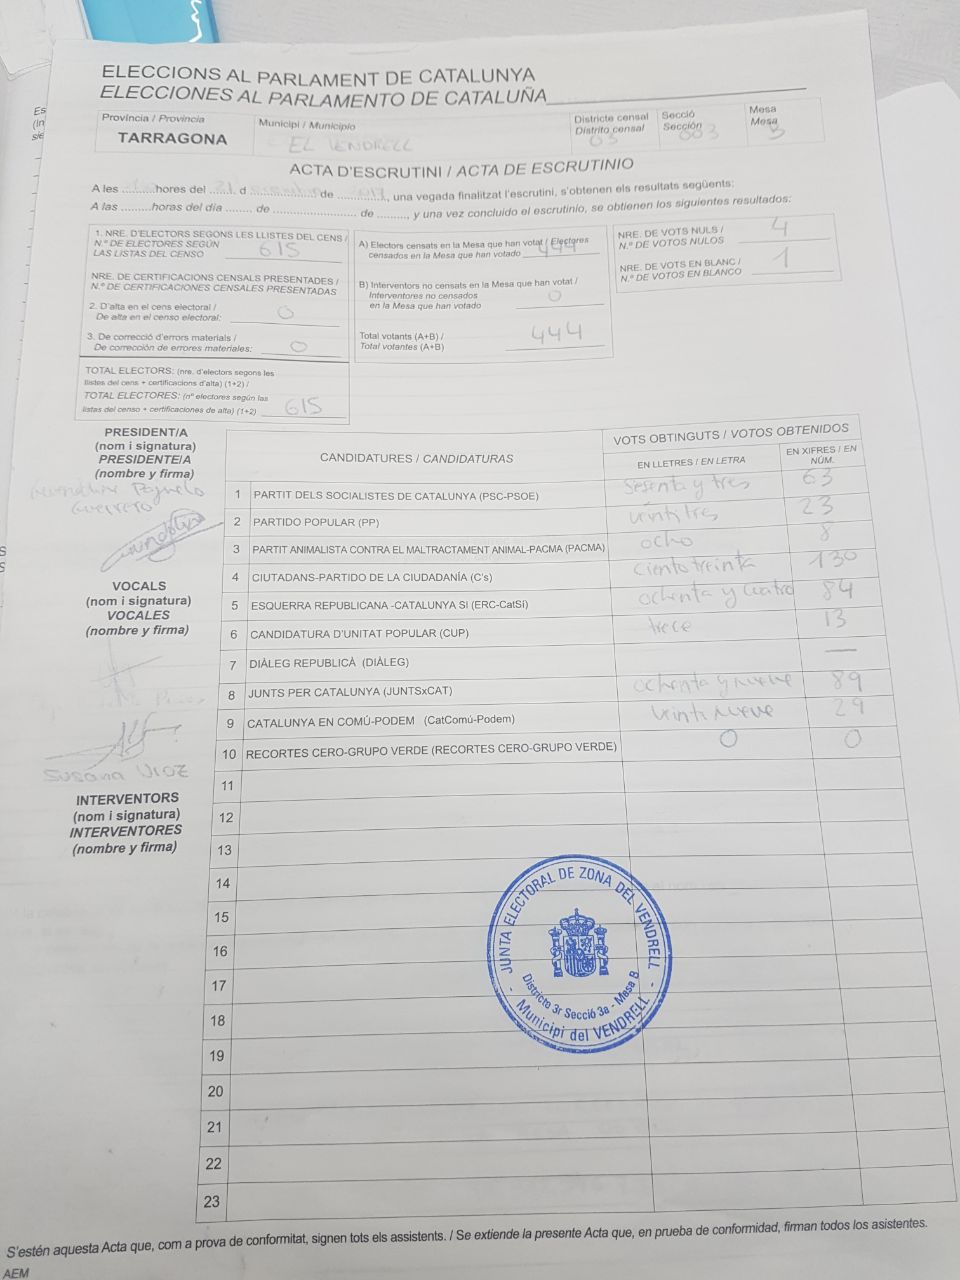 ELECCIONS AL PARLAMENT DE CATALUNYA
ELECCIONES AL PARLAMENTO DE CATALUÑA
Província / Provincia
TARRAGONA
Municipi / Municipio
EL VENDRELL
Districte censal
Distrito censal
03
Secció
Sección
003
Mesa
Mesa
B
ACTA D'ESCRUTINI / ACTA DE ESCRUTINIO
A les hores del 21 d de 2017, una vegada finalitzat l'escrutini, s'obtenen els resultats següents:
A las horas del día de de , y una vez concluido el escrutinio, se obtienen los siguientes resultados:
1. NRE. D'ELECTORS SEGONS LES LLISTES DEL CENS /
N.º DE ELECTORES SEGÚN
LAS LISTAS DEL CENSO 615
NRE. DE CERTIFICACIONS CENSALS PRESENTADES /
N.º DE CERTIFICACIONES CENSALES PRESENTADAS
2. D'alta en el cens electoral /
De alta en el censo electoral: 0
3. De correcció d'errors materials /
De corrección de errores materiales: 0
TOTAL ELECTORS: (nre. d'electors segons les
llistes del cens + certificacions d'alta) (1+2) /
TOTAL ELECTORES: (nº electores según las
listas del censo + certificaciones de alta) (1+2) 615
A) Electors censats en la Mesa que han votat / Electores
censados en la Mesa que han votado 444
B) Interventors no censats en la Mesa que han votat /
Interventores no censados
en la Mesa que han votado 0
Total votants (A+B) /
Total votantes (A+B) 444
NRE. DE VOTS NULS /
N.º DE VOTOS NULOS 4
NRE. DE VOTS EN BLANC /
N.º DE VOTOS EN BLANCO 1
PRESIDENT/A
(nom i signatura)
PRESIDENTE/A
(nombre y firma)
Guerrero
VOCALS
(nom i signatura)
VOCALES
(nombre y firma)
Susana
INTERVENTORS
(nom i signatura)
INTERVENTORES
(nombre y firma)
CANDIDATURES / CANDIDATURAS
VOTS OBTINGUTS / VOTOS OBTENIDOS
EN LLETRES / EN LETRA
EN XIFRES / EN NÚM.
1 PARTIT DELS SOCIALISTES DE CATALUNYA (PSC-PSOE) sesenta y tres 63
2 PARTIDO POPULAR (PP) veintitres 23
3 PARTIT ANIMALISTA CONTRA EL MALTRACTAMENT ANIMAL-PACMA (PACMA) ocho 8
4 CIUTADANS-PARTIDO DE LA CIUDADANÍA (C's) ciento treinta 130
5 ESQUERRA REPUBLICANA -CATALUNYA SI (ERC-CatSí) ochenta y cuatro 84
6 CANDIDATURA D'UNITAT POPULAR (CUP) trece 13
7 DIÀLEG REPUBLICÀ (DIÀLEG) —
8 JUNTS PER CATALUNYA (JUNTSxCAT) ochenta y nueve 89
9 CATALUNYA EN COMÚ-PODEM (CatComú-Podem) veintinueve 29
10 RECORTES CERO-GRUPO VERDE (RECORTES CERO-GRUPO VERDE) 0 0
11
12
13
14
15
16
17
18
19
20
21
22
23
JUNTA ELECTORAL DE ZONA DEL VENDRELL
Districte 3r Secció 3a - Mesa B
- Municipi del VENDRELL -
S'estén aquesta Acta que, com a prova de conformitat, signen tots els assistents. / Se extiende la presente Acta que, en prueba de conformidad, firman todos los asistentes.
AEM